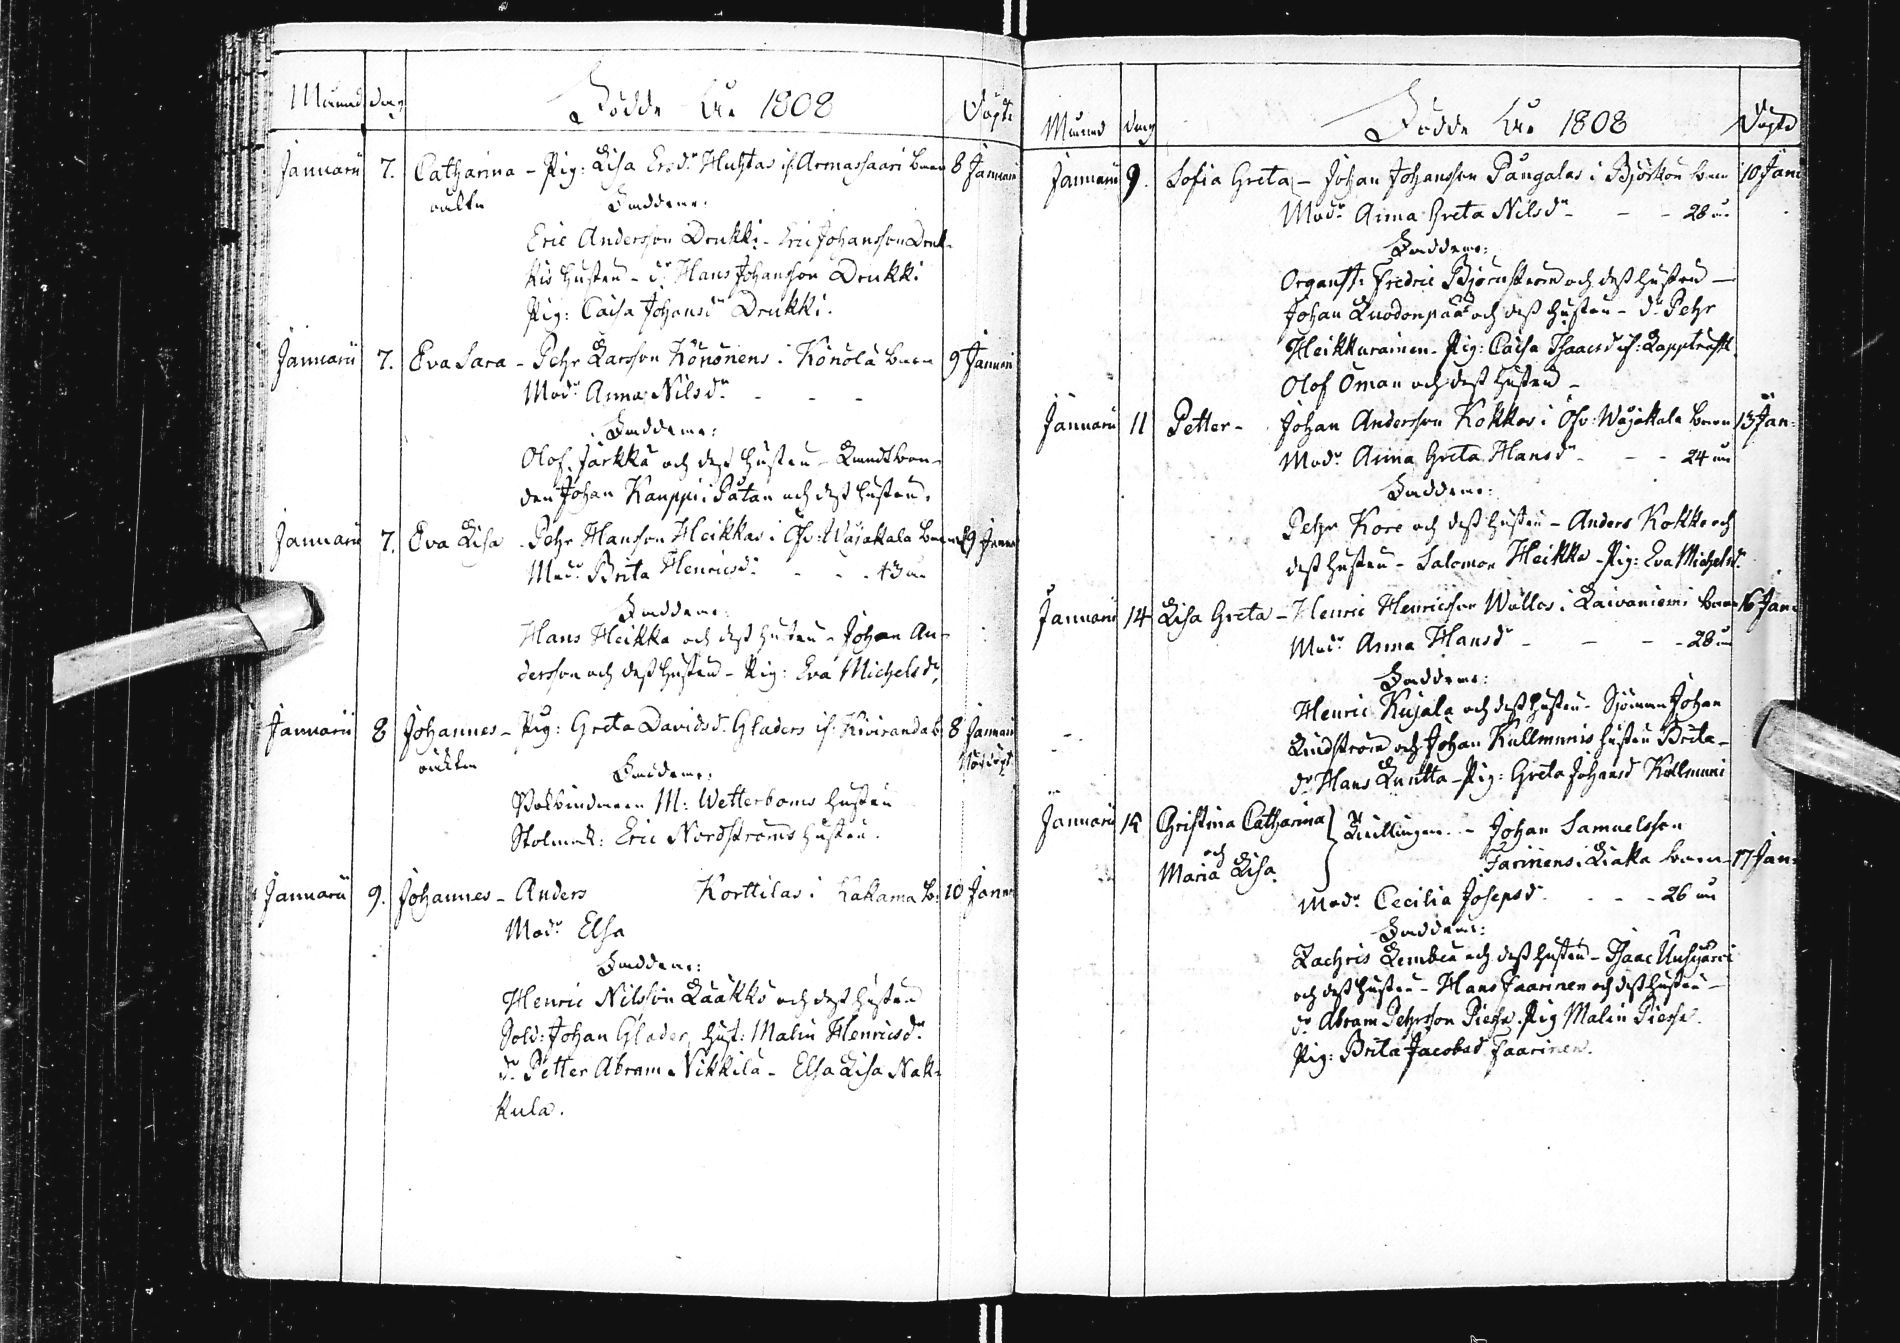 Månad dag Födde År 1808 Döpte
Januarii 7. Catharina – Pig: Lisa Ersdr Huhtas if. Armassaari barn 8 Januari
oäkta Faddrar:
Eric Andersson Drukki – Eric Johansson Druk-
kis hustru – dr. Hans Johansson Drukki
Pig: Caisa Johansdr Drukki.
Januarii 7. Eva Sara – Pehr Larsson Könönens i Könölä barn 9 Januari
Modr Anna Nilsdr – – –
Faddrar:
Olof Jarkkä och dess hustru – Landtbon-
den Johan Kauppi i Pätan och dess hustru.
Januarii 7. Eva Lisa – Pehr Hansson Heikkas i Öfv: Wojakkala barn 9 Janua
Modr Brita Henricsdr – – – 43 år
Faddrar:
Hans Heikka och dess hustru – Johan An-
dersson och dess hustru – Pig: Eva Michelsdr.
Januarii 8 Johannes – Pig: Greta Davidsdr Gladers if. Kiviranda b. 8 Januari
oäkta Nöddöpt
Faddrar:
Bokbindaren M: Wetterboms hustru
Stolmak: Eric Nordströms hustru.
Januarii 9. Johannes – Anders Korttilas i Kakama b: 10 Janua
Modr Elsa
Faddrar:
Henric Nilsson Laakko och dess hustru
Sold: Johan Glader, hust: Malin Henricsdr
dr. Petter Abram Nikkilä – Elsa Lisa Nak-
kula.
Månad dag Födde År 1808 Döpte
Januarii 9. Sofia Greta – Johan Johansson Pangalas i Björkön barn 10 Janu
Modr Anna Greta Nilsdr – – – 28 år
Faddrar:
Organist: Fredric Björnström och dess hustru –
Johan Luodonpää och dess hustru – dr. Pehr
Heikkurainen – Pig: Caisa Isaacsdr if.
Olof Öman och dess hustru –
Januarii 11 Petter – Johan Andersson Kokkos i Öfv: Wojakkala barn 13 Jan:
Modr Anna Greta Hansdr – – – 24 år
Faddrar:
Pehr Kore och dess hustru – Anders Kokko och
dess hustru – Salomon Heikka – Pig: Eva Michelsd.
Januarii 14 Lisa Greta – Henric Henricsson Wallos i Laivaniemi barn 16 Jan:
Modr Anna Hansdr – – – 28 år
Faddrar:
Henric Kujala och dess hustru – Sjöman Johan
Lindström och Johan Kullmunis hustru Brita –
dr. Hans Luutta – Pig: Greta Johansd Kallmuni
Januarii 15 Christina Catharina } Twillingar. – Johan Samuelsson
och Maria Lisa. Farinens i Liakka barn 17 Jan:
Modr Cecilia Josepsdr – – – 26 år
Faddrar:
Zachris Lembea och dess hustru – Isaac Uusijärvi
och dess hustru – Hans Faarinen och dess hustru –
dr. Abram Pehrsson Pieska. Pig Malin Pieska.
Pig: Brita Jacobsd. Faarinen.